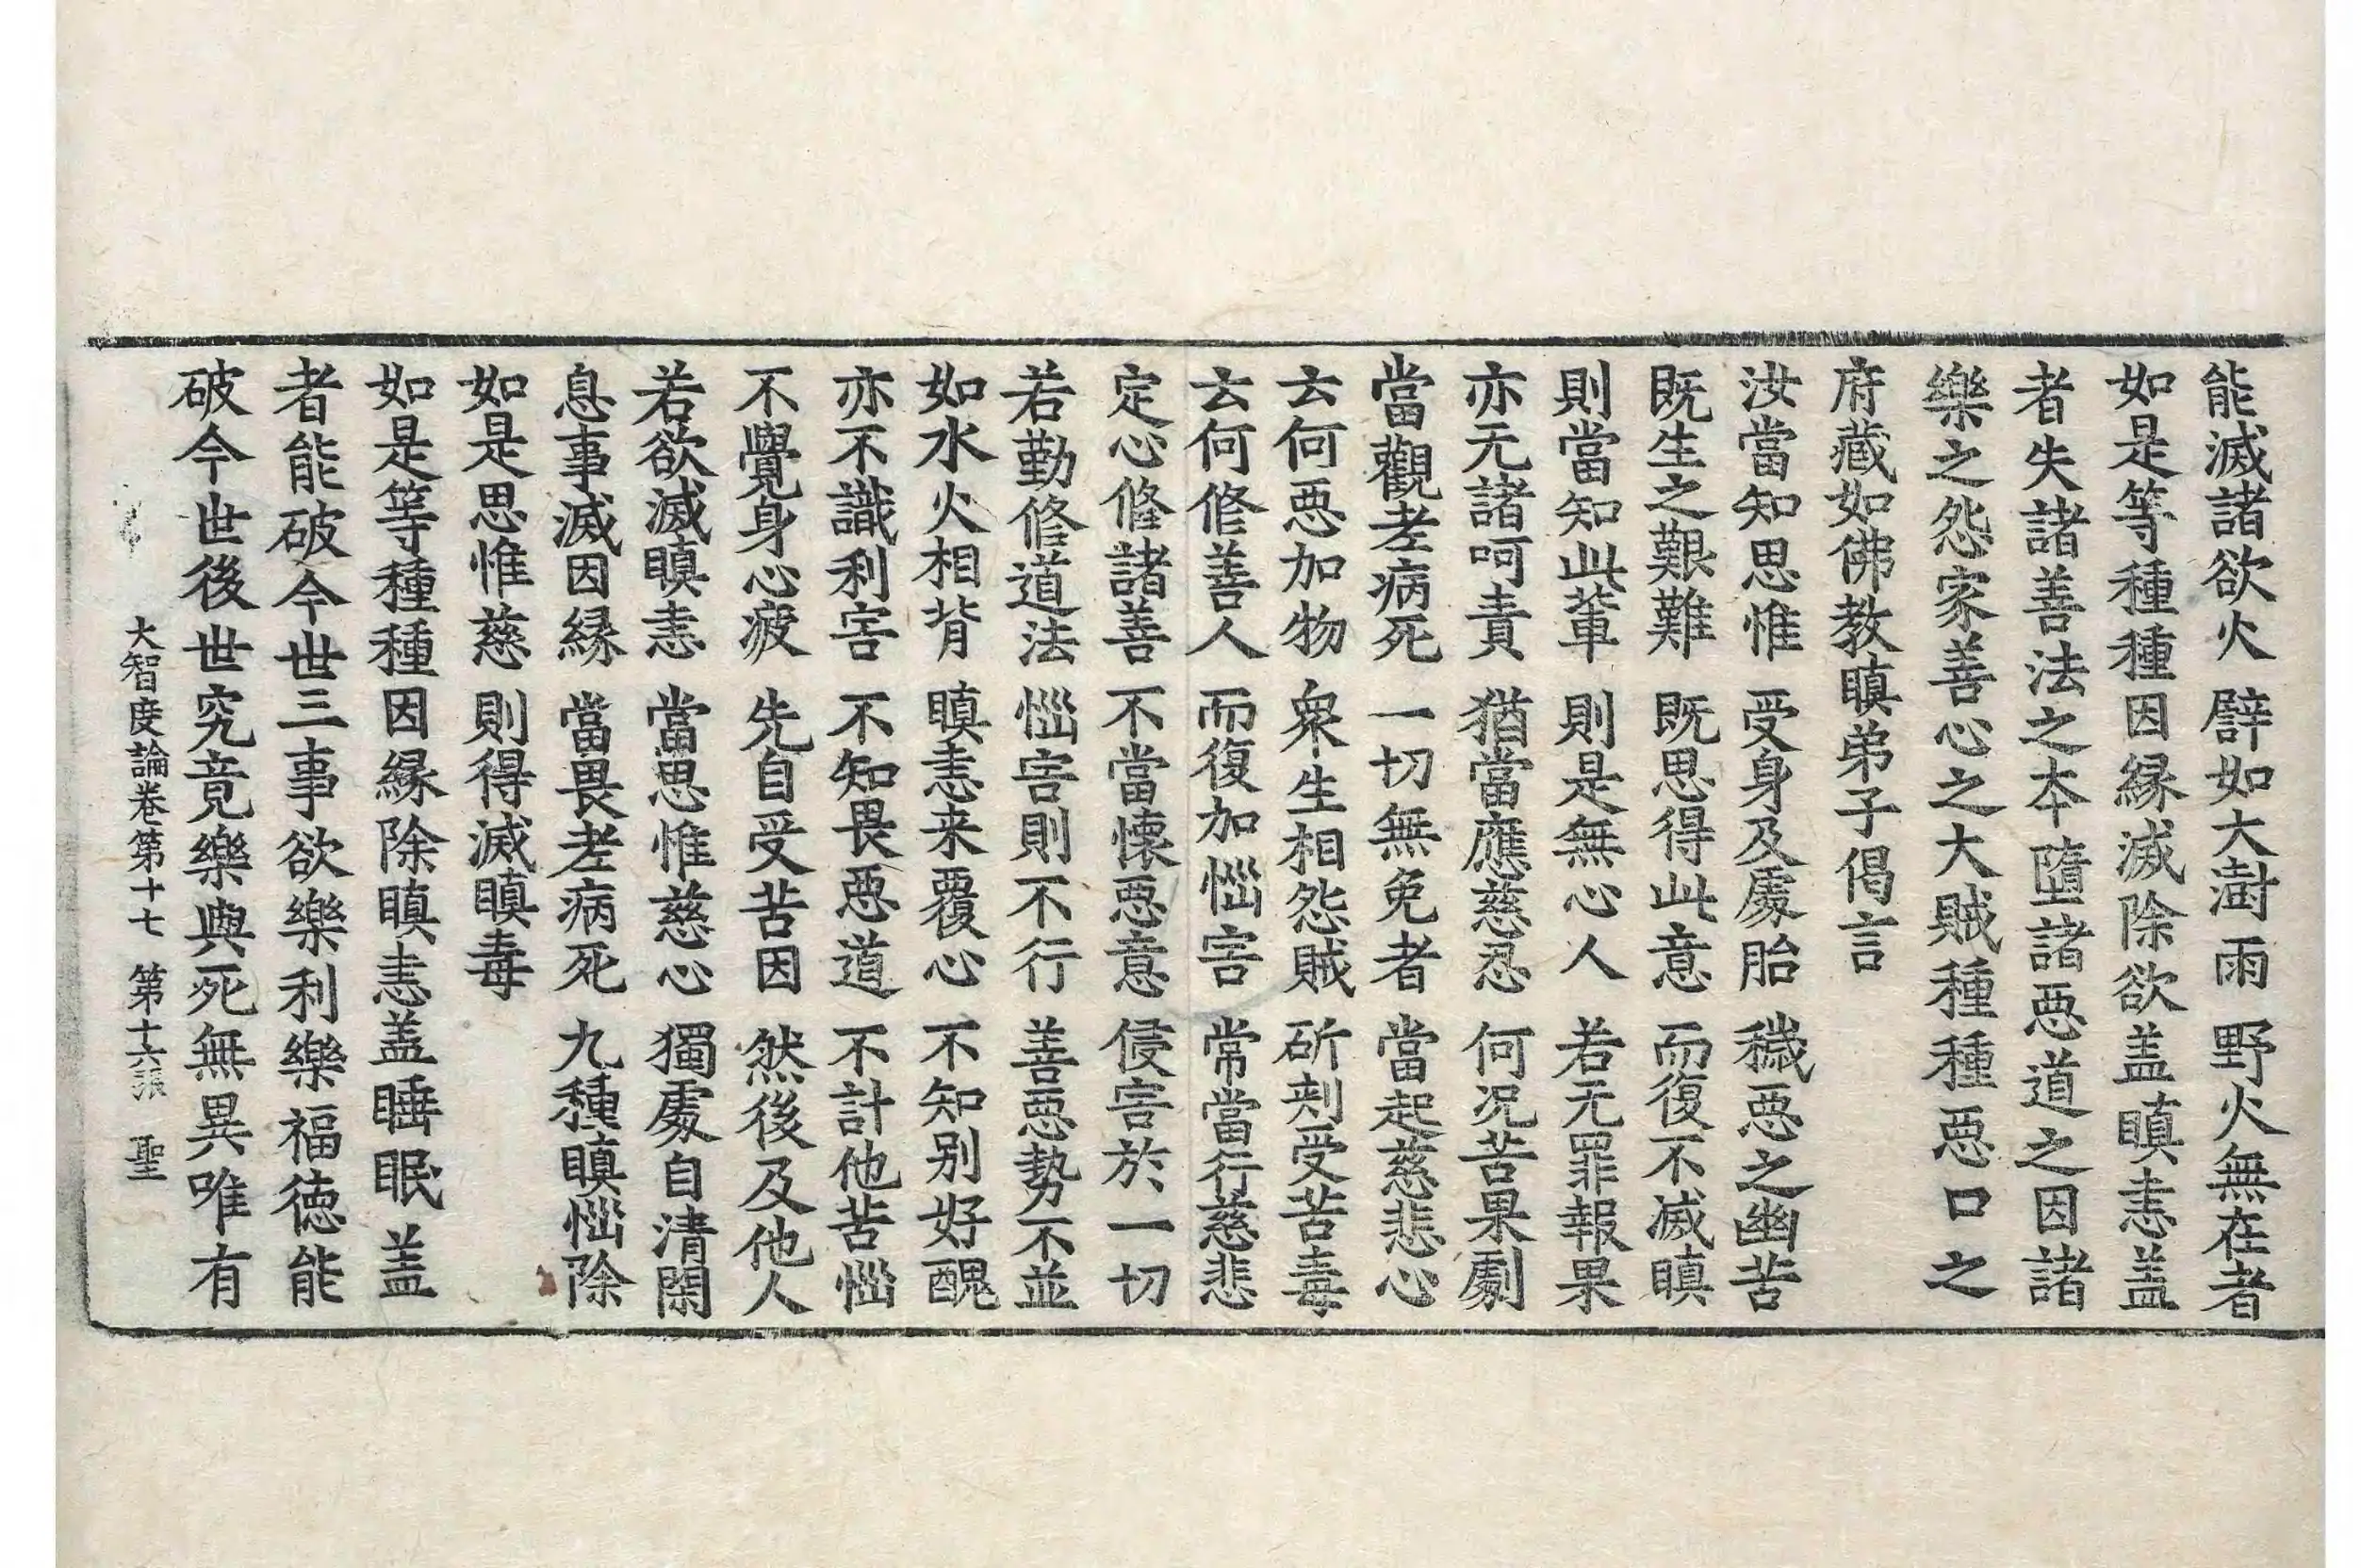 能滅諸欲火 譬如大澍雨 野火無在者
如是等種種因緣滅除欲盖瞋恚盖
者失諸善法之本墮諸惡道之因諸
樂之怨家善心之大賊種種惡口之
府藏如佛教瞋弟子偈言
汝當知思惟 受身及處胎 穢惡之幽苦
既生之艱難 既思得此意 而復不滅瞋
則當知此輩 則是無心人 若无罪報果
亦无諸呵責 猶當應慈忍 何況苦果劇
當觀老病死 一切無免者 當起慈悲心
云何惡加物 衆生相怨賊 斫刺受苦毒
云何修善人 而復加惱害 常當行慈悲
定心修諸善 不當懷惡意 侵害於一切
若勤修道法 惱害則不行 善惡勢不並
如水火相背 瞋恚来覆心 不知別好醜
亦不識利害 不知畏惡道 不計他苦惱
不覺身心疲 先自受苦因 然後及他人
若欲滅瞋恚 當思惟慈心 獨處自清閑
息事滅因緣 當畏老病死 九種瞋惱除
如是思惟慈 則得滅瞋毒
如是等種種因緣除瞋恚盖睡眠盖
者能破今世三事欲樂利樂福德能
破今世後世究竟樂與死無異唯有
大智度論卷第十七 第十六張 聖